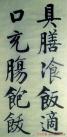 具膳飡飯適
口充腸飽飫